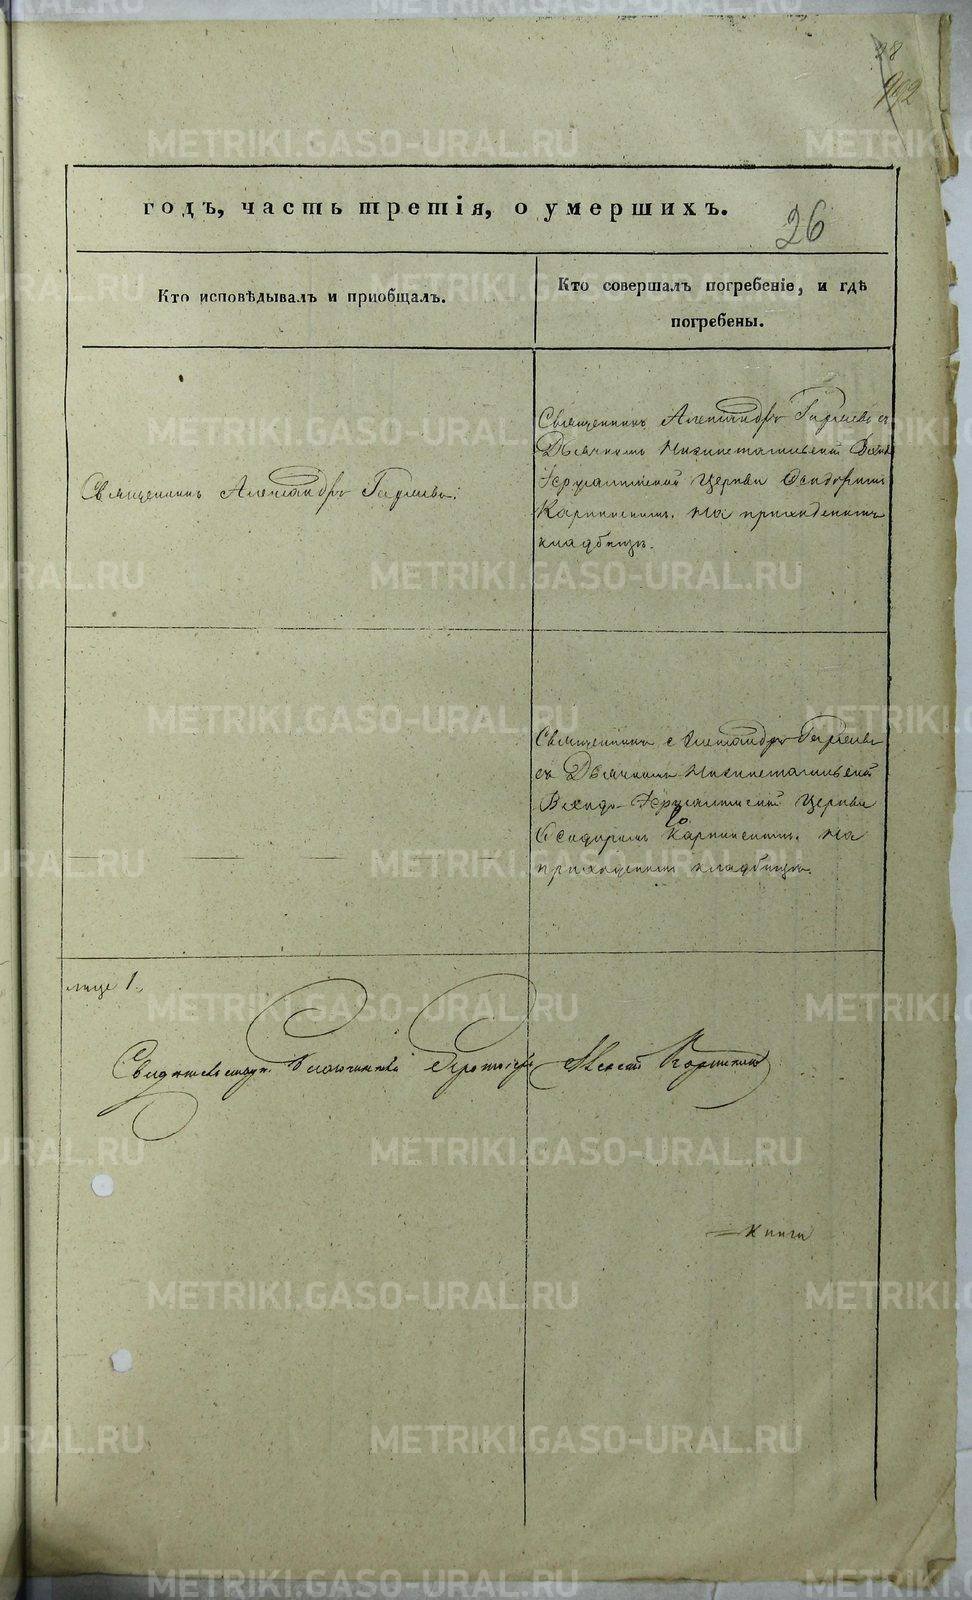 28
992
годъ, часть третія, о умершихъ.
26
Кто исповѣдывалъ и приобщалъ.
Кто совершалъ погребеніе, и гдѣ
погребены.
Священникъ Александръ
Священникъ Александръ съ
Дьячкомъ Нижнетагильской Входо
Іерусалимской Церкви Исидоромъ
Карпинскимъ. На приходскомъ
кладбищѣ.
Священникъ Александръ
съ Дьячкомъ Нижнетагильской
Входо-Іерусалимской Церкви
Исидоромъ Карпинскимъ. На
приходскомъ кладбищѣ.
лице 1.
Свидѣтельствую Благочинный Протоіерей Алексей
книги
METRIKI.GASO-URAL.RU